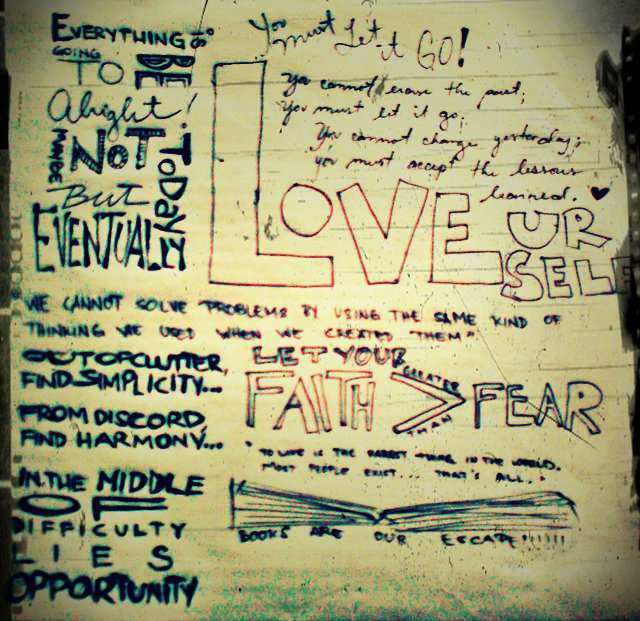 EVERYTHING is
GOING
TO BE
Alright!
MAYBE NOT TODAY
But
EVENTUALLY
You must Let it GO!
You cannot erase the past;
You must let it go;
You cannot change yesterday;
you must accept the lessons
learned. ♥
LOVE UR
SELF
WE CANNOT SOLVE PROBLEMS BY USING THE SAME KIND OF
THINKING WE USED WHEN WE CREATED THEM"
OUT OF CLUTTER,
FIND SIMPLICITY...
FROM DISCORD,
FIND HARMONY...
IN THE MIDDLE
OF
DIFFICULTY
LIES
OPPORTUNITY
LET YOUR
FAITH > FEAR
GREATER
THAN
"TO LIVE IS THE RAREST THING IN THE WORLD.
MOST PEOPLE EXIST... THAT'S ALL."
BOOKS ARE OUR ESCAPE!!!!!!!